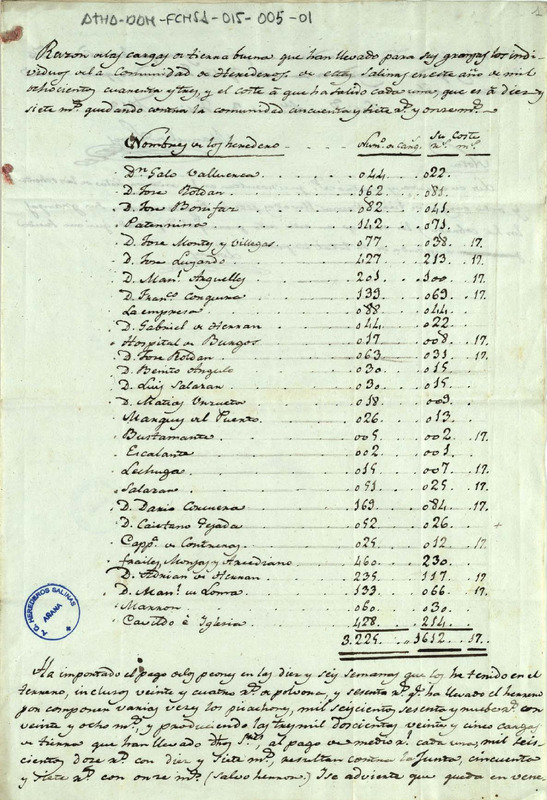 ATHA-DOH-FCHSA-015-005-01
1
Razon de las cargas de tierra buena que han llevado para sus granjas los indi-
viduos de la Comunidad de Herederos de estas Salinas en este año de mil
ochocientos cuarenta y tres, y el coste á que ha salido cada una, que es á diez y
siete mrs. quedando contra la comunidad cincuenta y siete rs. y once mrs.
Nombres de los herederos Numo. de carg. Su coste rs. ms.
Dn. Galo Valluerca 044. 022.
D. Jose Roldan 162. 081.
D. Jose Bonifaz 082. 041.
Paternina 142. 071.
D. Jose Montes y Villegas 077. 038. 17.
D. Jose Lugardo 427. 213. 17.
D. Manl. Arguelles 201. 100. 17.
D. Franco. 139. 069. 17.
La empresa 088. 044.
D. Gabriel de Herran 044. 022.
Hospital de Burgos 017. 008. 17.
D. Jose Roldan 063. 031. 17.
D. Benito Angulo 030. 015.
D. Luis Salazar 030. 015.
D. Matias Unzueta 018. 009.
Marques del Puerto 026. 013.
Bustamante 005. 002. 17.
Escalante 002. 001.
Lechuga 015. 007. 17.
Salazar 051. 025. 17.
D. Dario Corcuera 169. 084. 17.
D. Caietano Tejada 052. 026.
Cappa. de Contreras 025. 012. 17.
Frailes, Monjas y Arcediano 460. 230.
D. Adrian de Herran 235. 117. 17.
D. Manl. de Lorra 133. 066. 17.
Marron 060. 030.
Cavildo é Iglesia 428. 214.
3.225. 1612. 17.
Ha importado el pago de los peones en las diez y seis semanas que los he tenido en el
terreno, inclusos veinte y cuatro rs. de polvora, y sesenta rs. qe. ha llevado el herrero
por componer varias veces los picachones, mil seiscientos sesenta y nueve rs. con
veinte y ocho mrs., y produciendo las tres mil doscientos veinte y cinco cargas
de tierra que han llevado dhos , al pago de medio rl. cada una, mil seis
cientos doce rs. con diez y siete mrs., resultan contra la Junta, cincuenta
y siete rs. con once mrs. (salvo herror.) Y se advierte que queda en vene-
A. C. HEREDEROS SALINAS
AÑANA